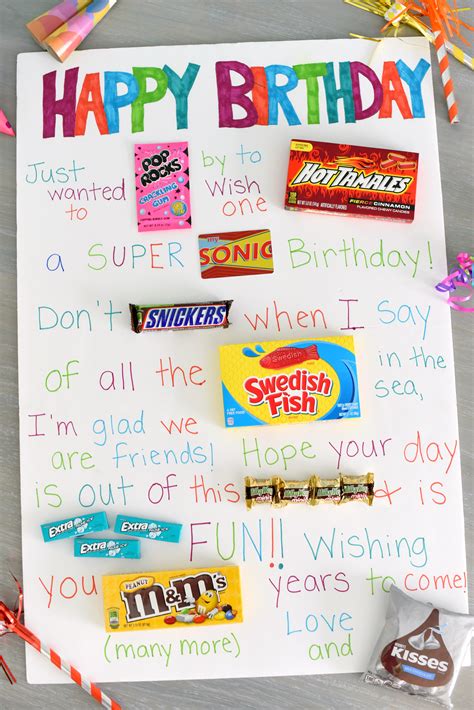 HAPPY BIRTHDAY
Just wanted to POP ROCKS CRACKLING GUM by to wish one HOT TAMALES FIERCE CINNAMON
a SUPER my SONIC Birthday!
Don't SNICKERS when I say
of all the Swedish Fish in the sea,
I'm glad we are friends! Hope your day
is out of this Milky Way & is
Extra Extra Extra FUN!! Wishing
you PEANUT m&m's years to come!
(many more) Love and KISSES